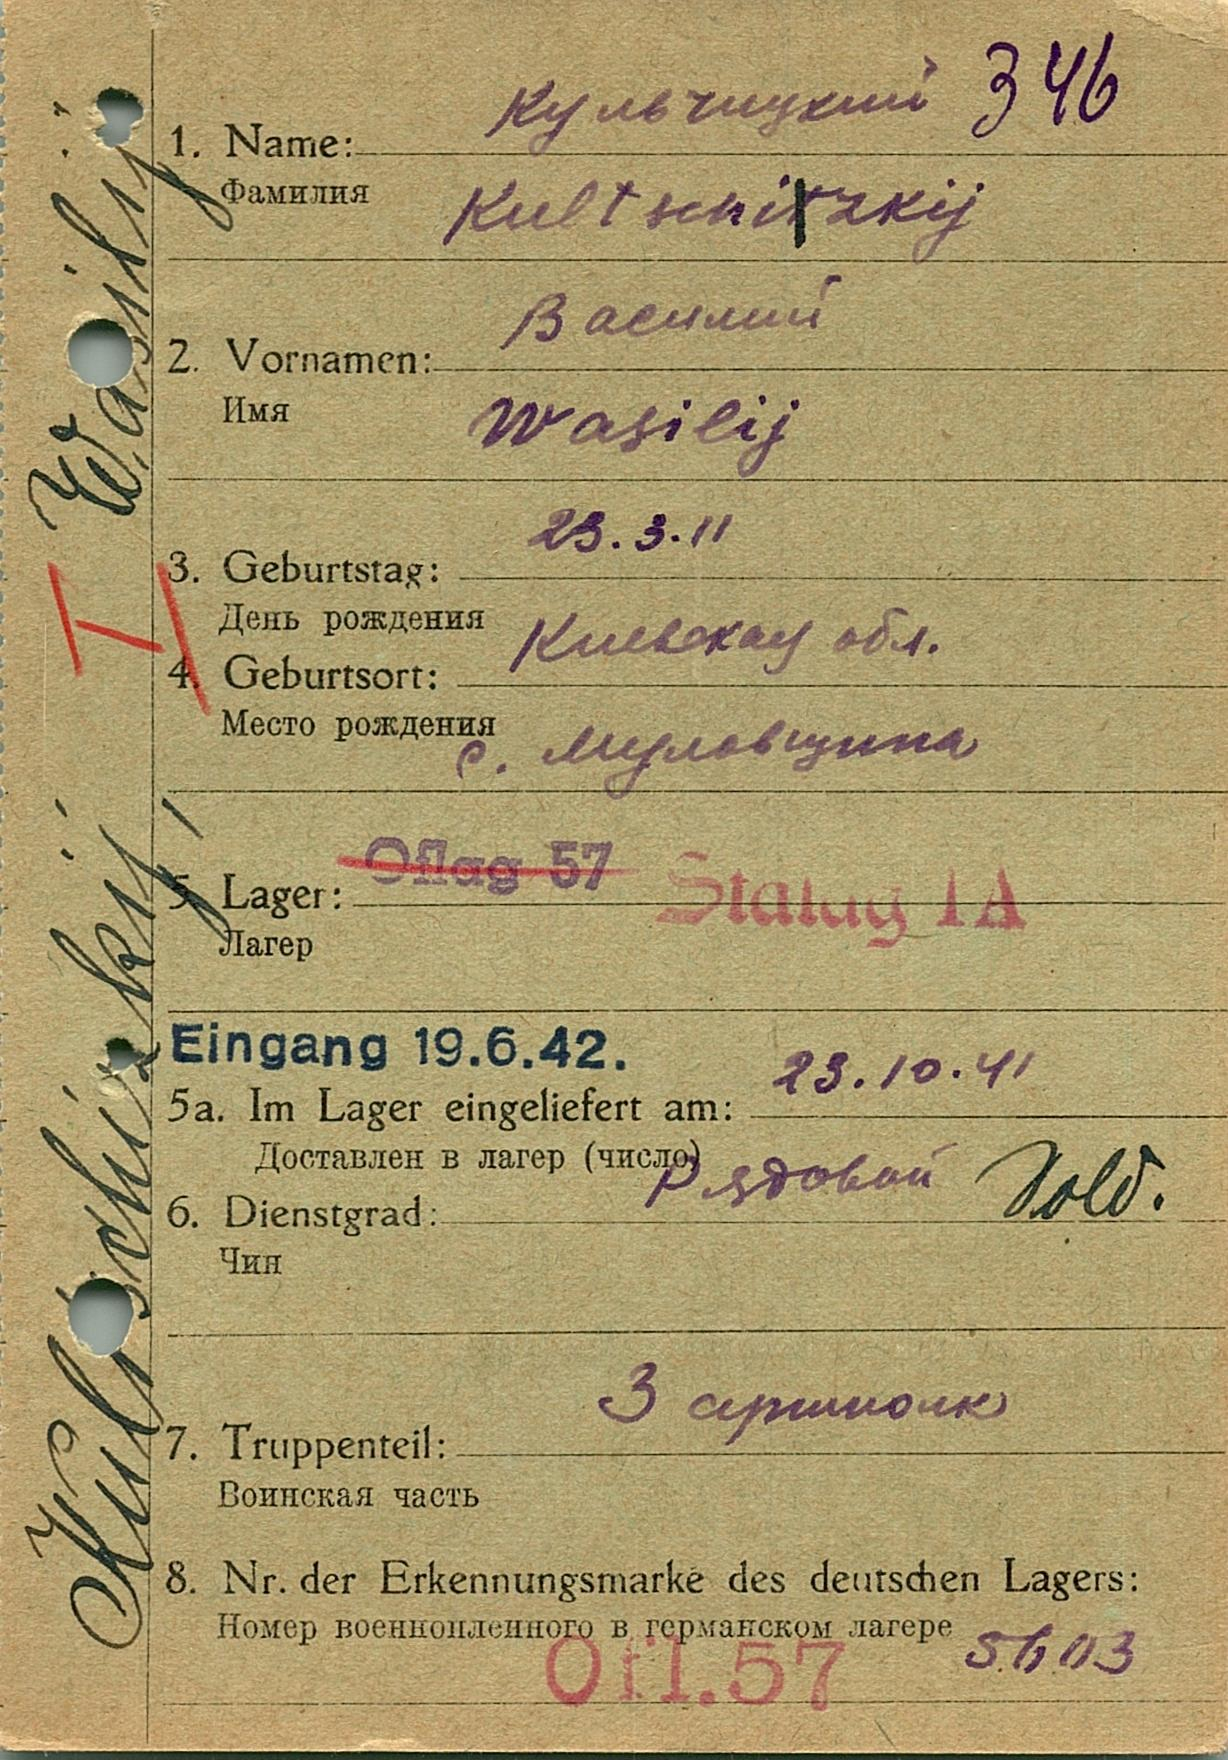 Кульчицкий 346
1. Name:
Фамилия
Kultschitzkij
Василий
2. Vornamen:
Имя
Wasilij
23.3.11
3. Geburtstag:
День рождения
Киевская обл.
4. Geburtsort:
Место рождения
с. Муловщина
Oflag 57 Stalag IA
5. Lager:
Лагер
Eingang 19.6.42.
23.10.41
5a. Im Lager eingeliefert am:
Доставлен в лагер (число)
Рядовой Sold.
6. Dienstgrad:
Чин
3 артполк
7. Truppenteil:
Воинская часть
8. Nr. der Erkennungsmarke des deutschen Lagers:
Номер военнопленного в германском лагере
Ofl.57 5603
Kultschizkij, Wasilij